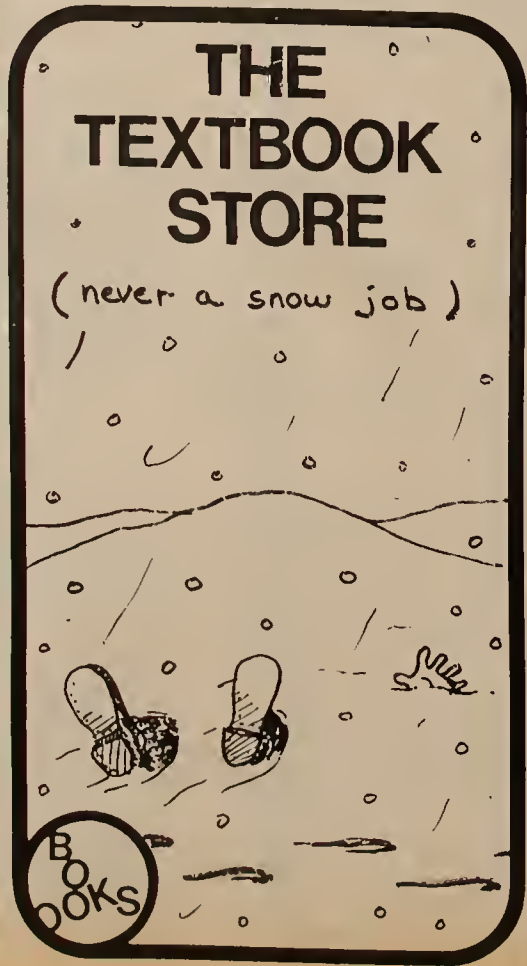 THE
TEXTBOOK
STORE
(never a snow job)
BOOKS